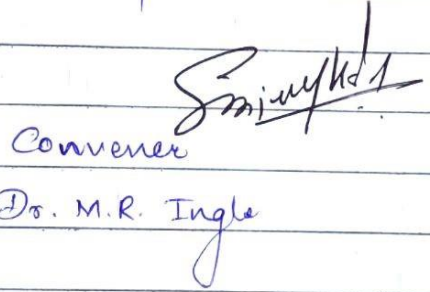 Convener
Dr. M.R. Ingle